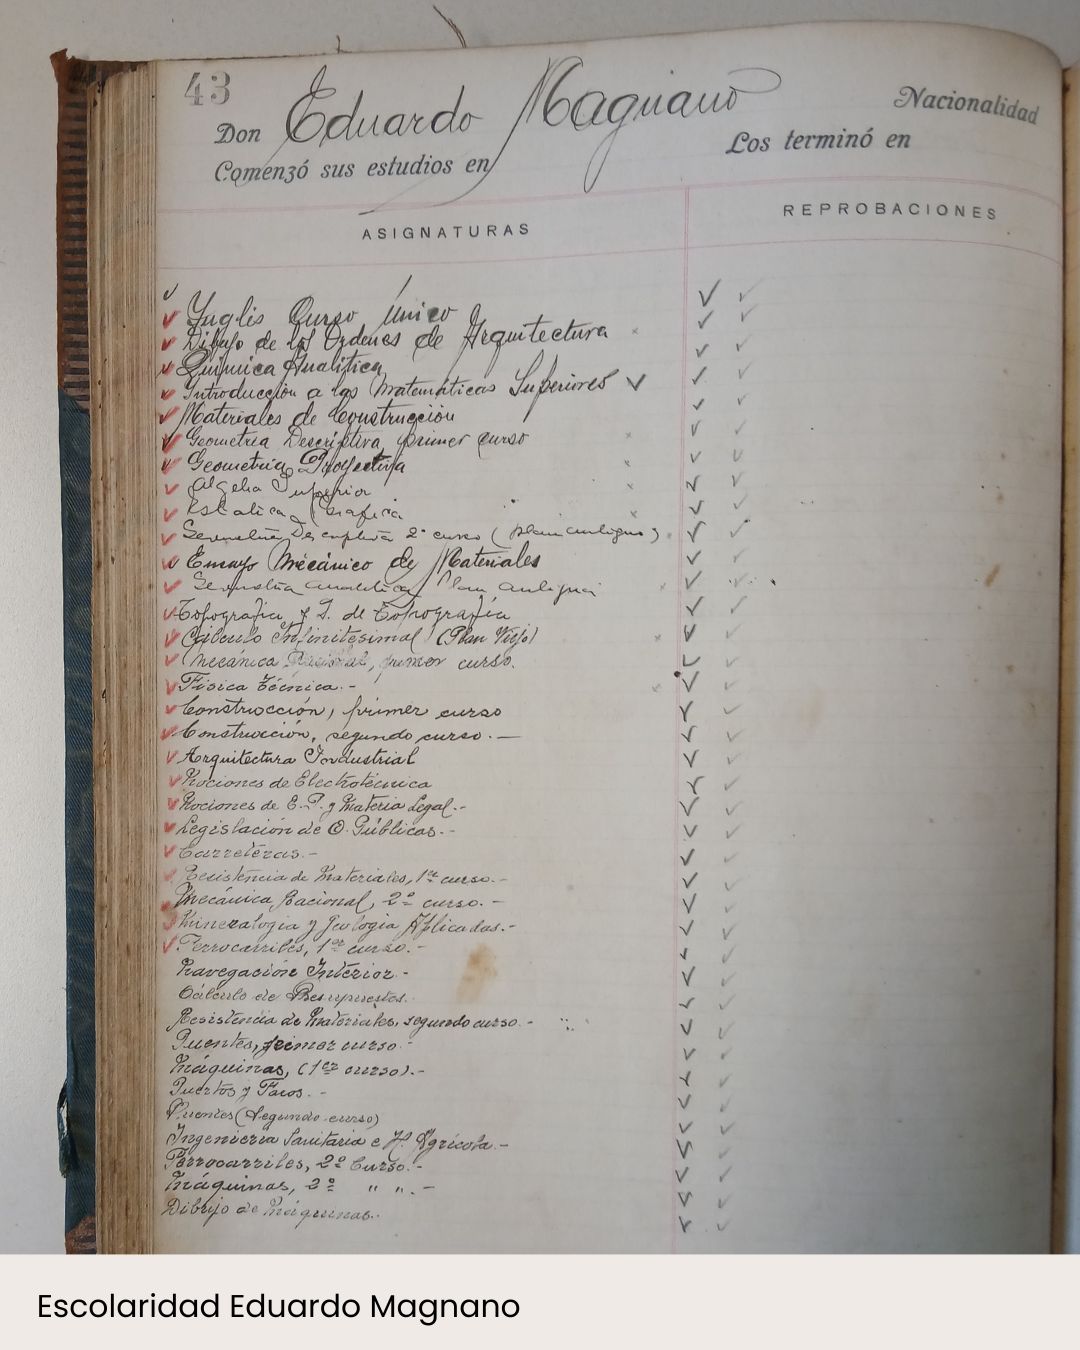 43
Don Eduardo Magnano Nacionalidad
Comenzó sus estudios en Los terminó en
ASIGNATURAS REPROBACIONES
Inglés Curso Único
Dibujo de los Ordenes de Arquitectura
Química Analítica
Introducción a las Matemáticas Superiores
Materiales de Construcción
Geometría Descriptiva, primer curso
Geometría Proyectiva
Algebra Superior
Estatica Grafica
Geometria Descriptiva 2º curso (plan antiguo)
Ensayo Mécánico de Materiales
Geometria Analitica Plan Antiguo
Topografía y D. de Topografía
Cálculo Infinitesimal (Plan Viejo)
Mecánica Racional, primer curso.
Física Técnica.-
Construcción, primer curso
Construcción, segundo curso.-
Arquitectura Industrial
Nociones de Electrotécnica
Nociones de E. P. y Materia Legal.-
Legislación de O. Públicas.-
Carreteras.-
Resistencia de Materiales, 1er curso.-
Mecánica Racional, 2º curso.-
Mineralogia y Geologia Aplicadas.-
Ferrocarriles, 1er curso.-
Navegación Interior.-
Cálculo de Presupuestos.
Resistencia de Materiales, segundo curso.-
Puentes, primer curso.-
Máquinas, (1er curso).-
Puertos y Faros.-
Puentes (Segundo curso)
Ingenieria Sanitaria e H. Agrícola.-
Ferrocarriles, 2º Curso.-
Máquinas, 2º " ".-
Dibujo de Máquinas.
Escolaridad Eduardo Magnano